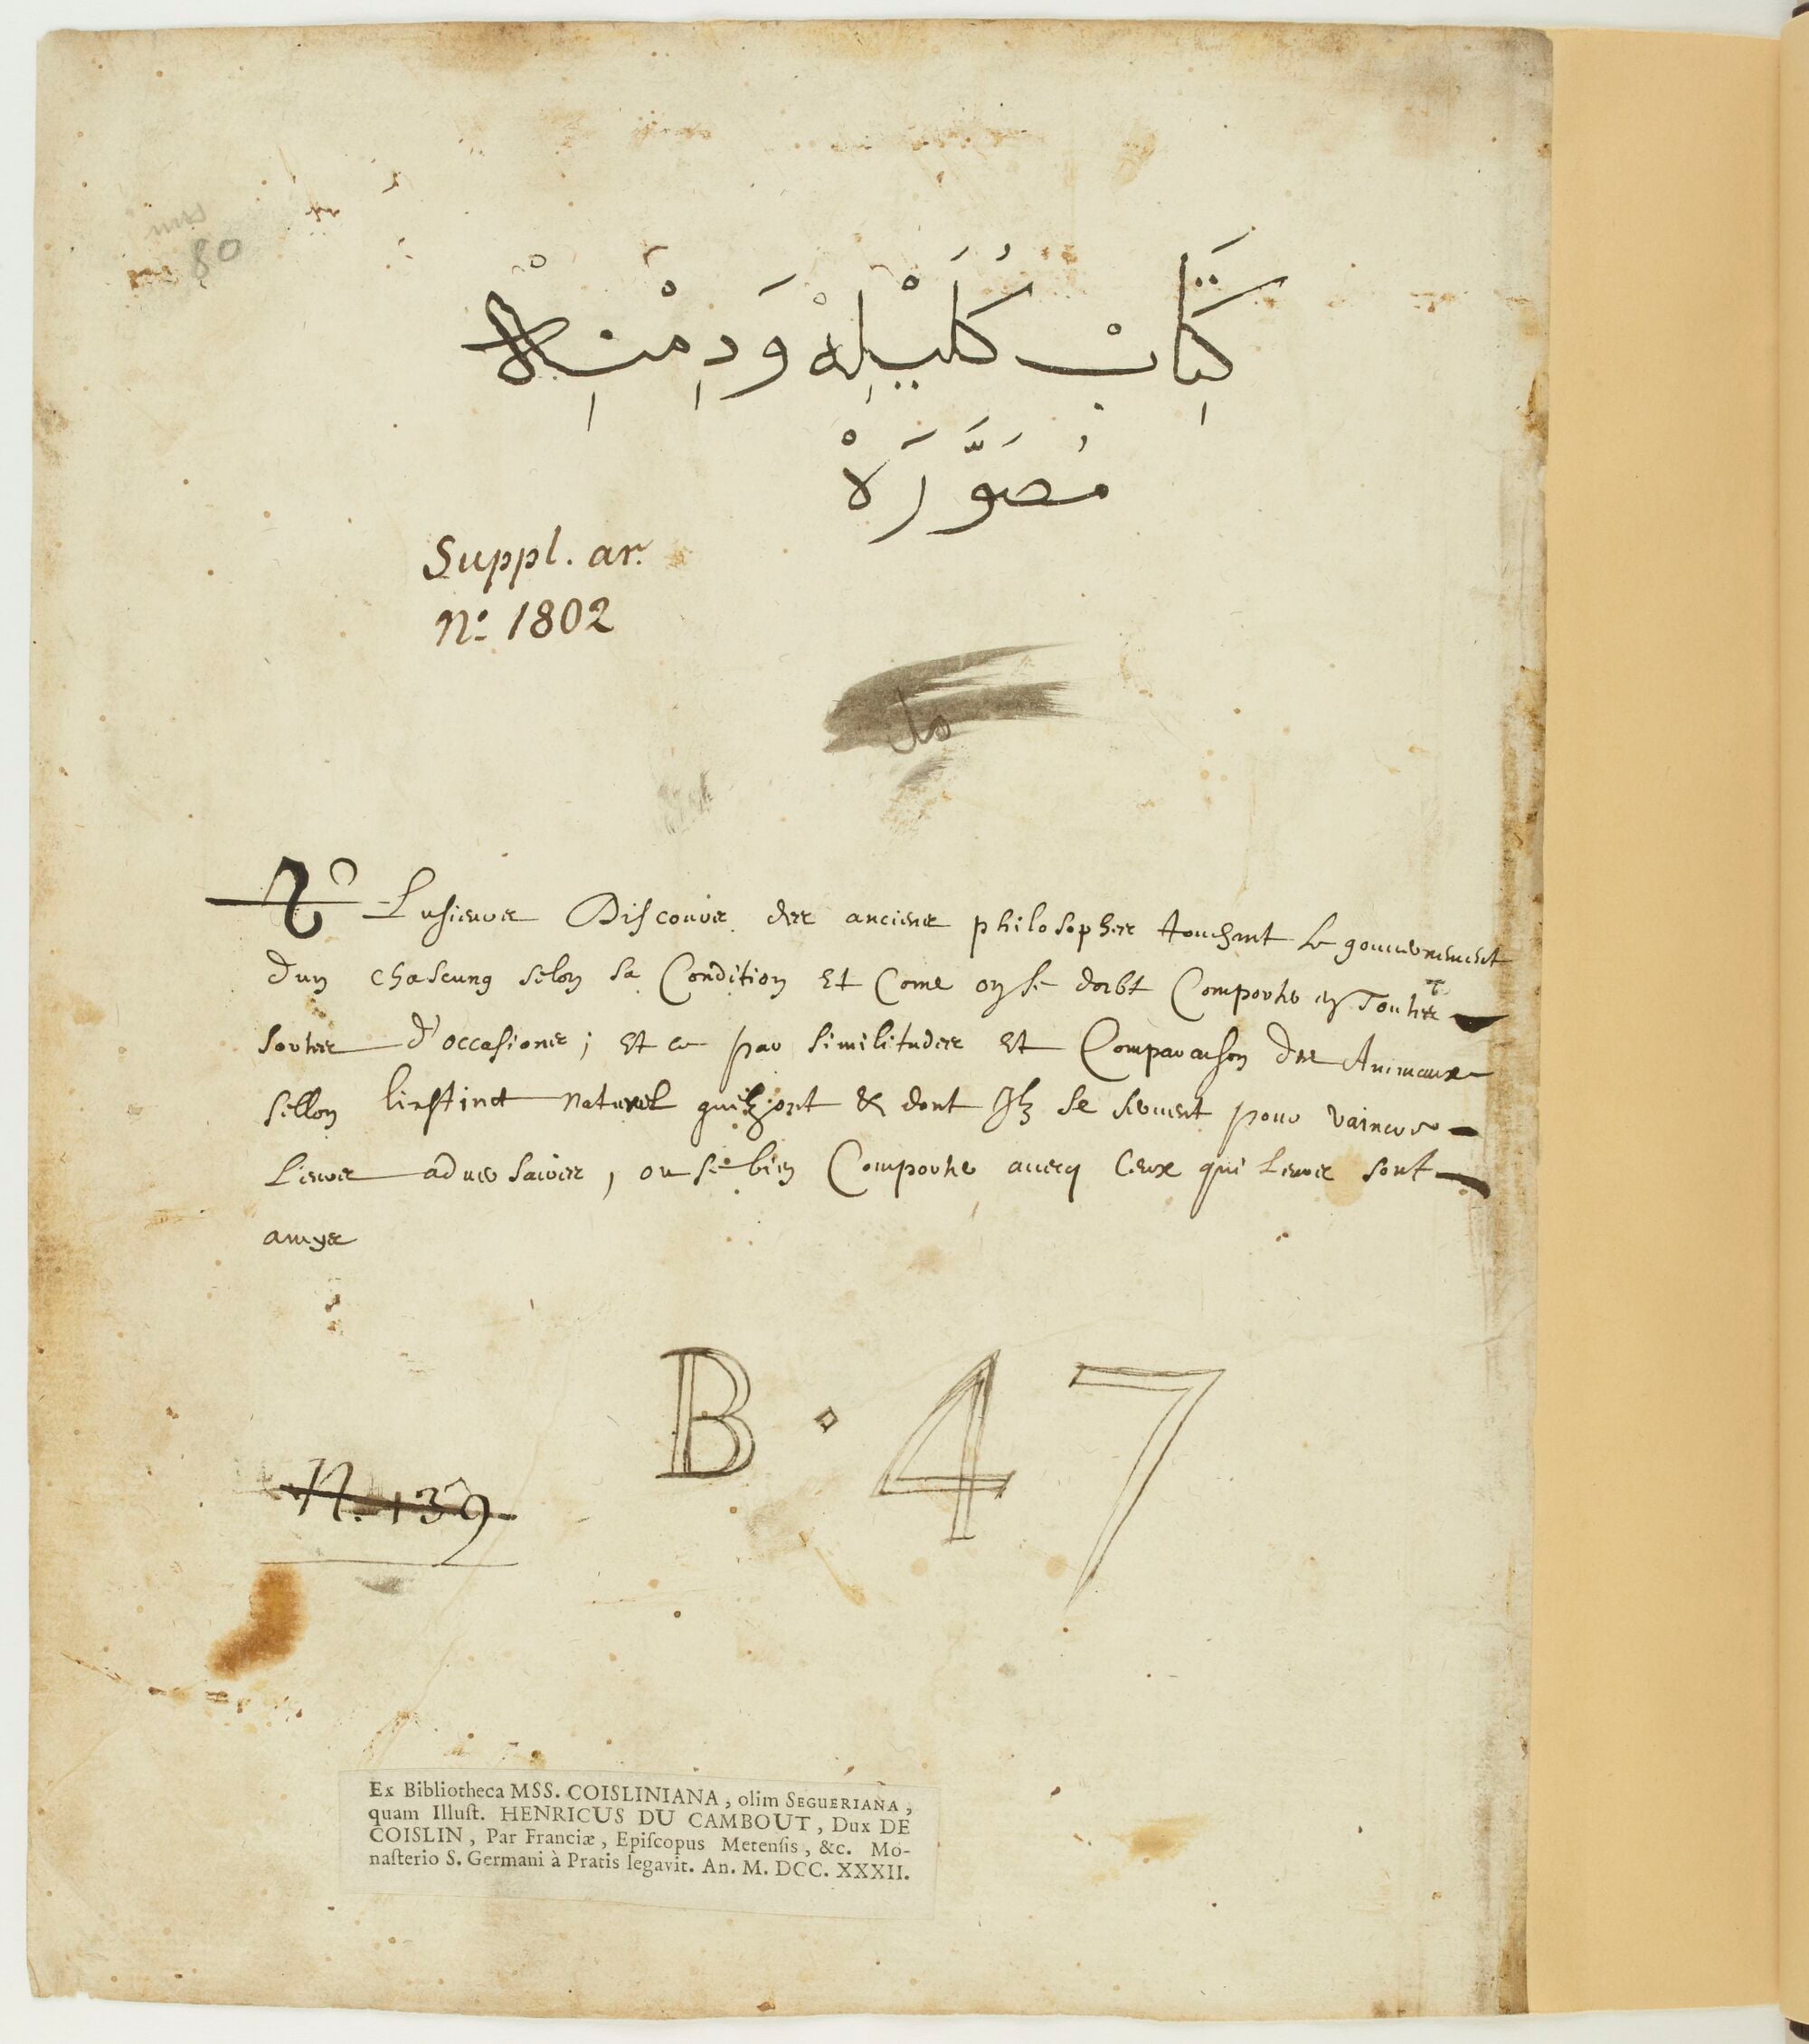 80
كِتَابْ كُلَيْلِهْ وَدِمْنِهْ
مُصَوَّرَهْ
Suppl. ar.
No. 1802
Plusieurs Discours des anciens philosophes touchant le gouvernement
dun chascung selon sa Condition et Come on se doibt Comporter en Toutes
sortes d'occasions; et ce par similitudes et Comparaison des Animaux
sellon linstinct naturel quilz ont & dont Ilz se servent pour vaincre
Lieurs adversaires, ou se bien Comporter avecq Ceux qui Leurs sont
amys
B · 47
N. 139
Ex Bibliotheca MSS. COISLINIANA, olim SEGUERIANA,
quam Illuſt. HENRICUS DU CAMBOUT, Dux DE
COISLIN, Par Franciæ, Epiſcopus Metenſis, &c. Mo-
naſterio S. Germani à Pratis legavit. An. M. DCC. XXXII.